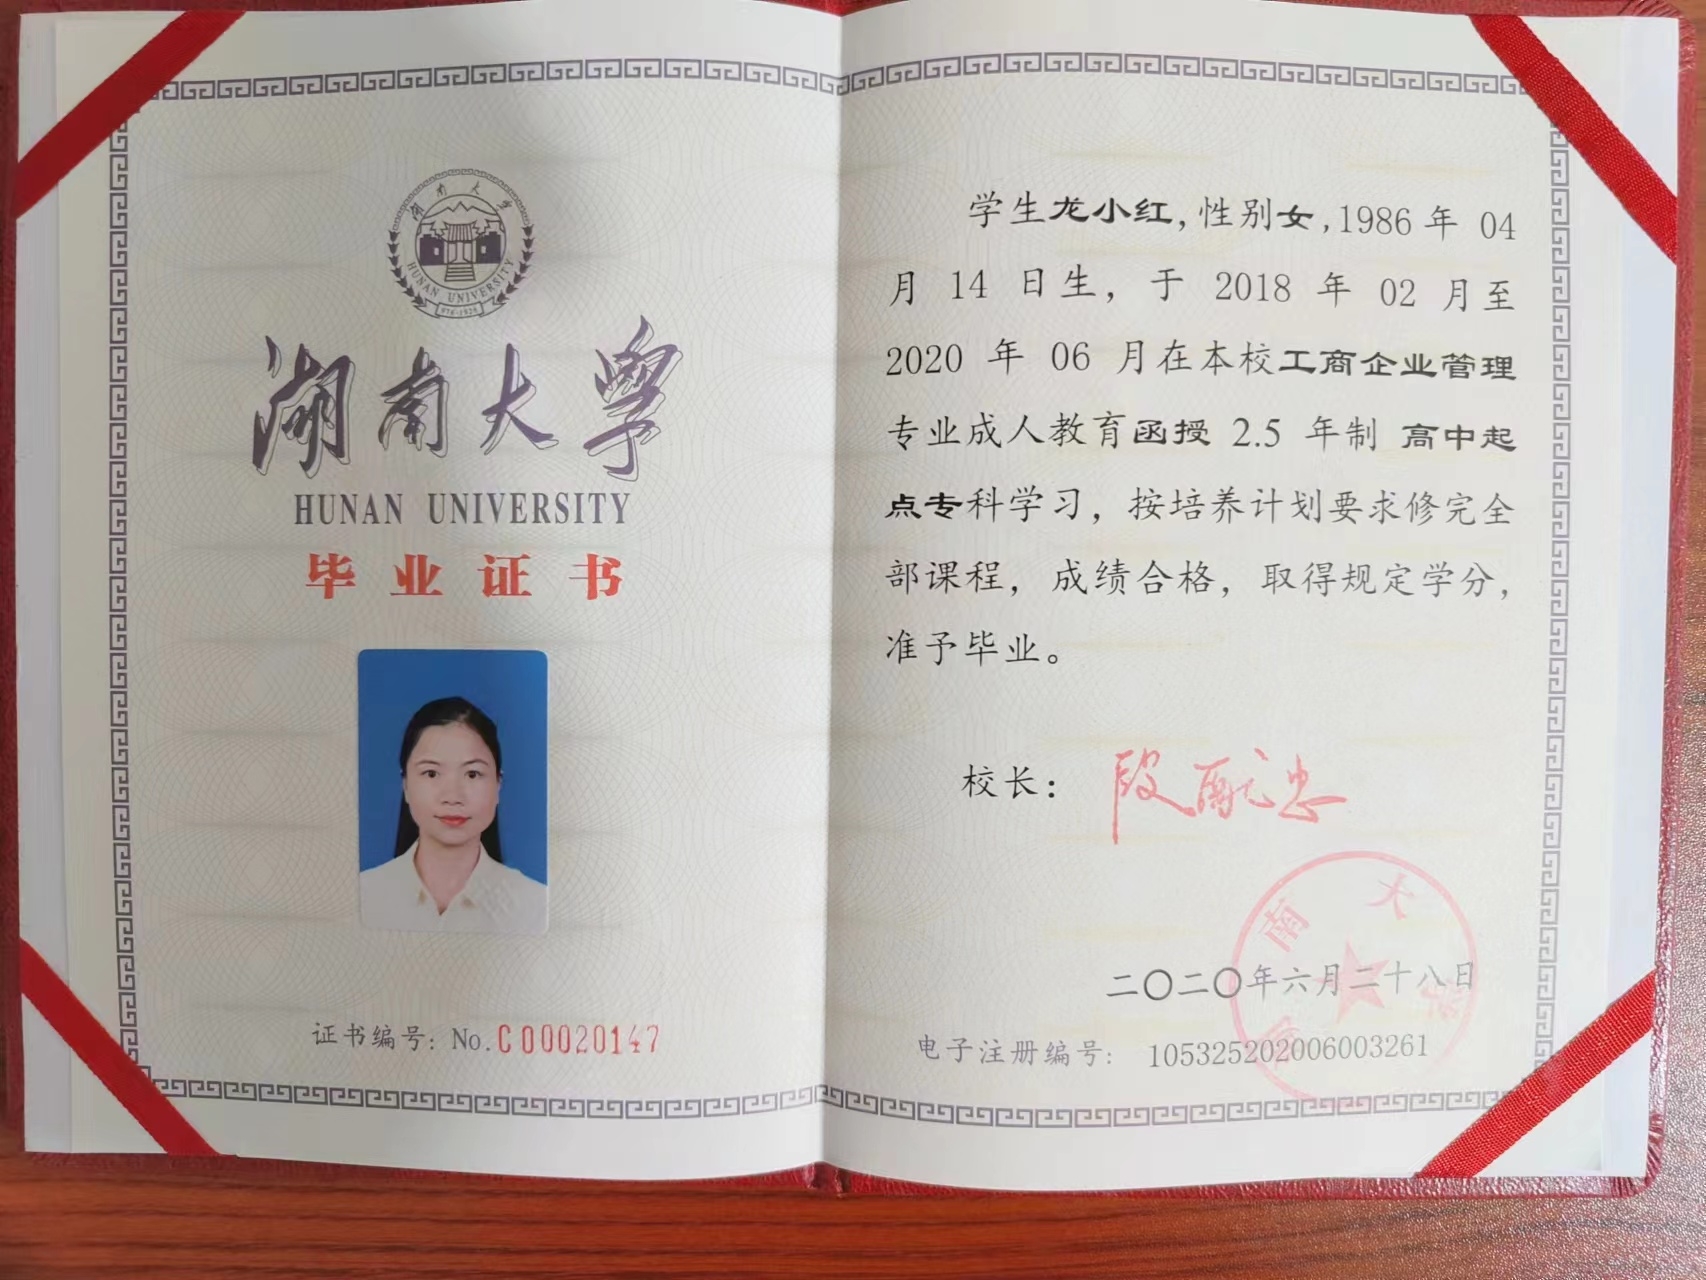 湖南大学
HUNAN UNIVERSITY
湖南大学
HUNAN UNIVERSITY
毕业证书
证书编号: No.C00020147
学生龙小红,性别女,1986年 04
月 14 日生, 于 2018 年 02 月至
2020 年 06 月在本校工商企业管理
专业成人教育函授 2.5 年制 高中起
点专科学习, 按培养计划要求修完全
部课程, 成绩合格, 取得规定学分,
准予毕业。
校长:
湖南大学
二〇二〇年六月二十八日
电子注册编号: 105325202006003261